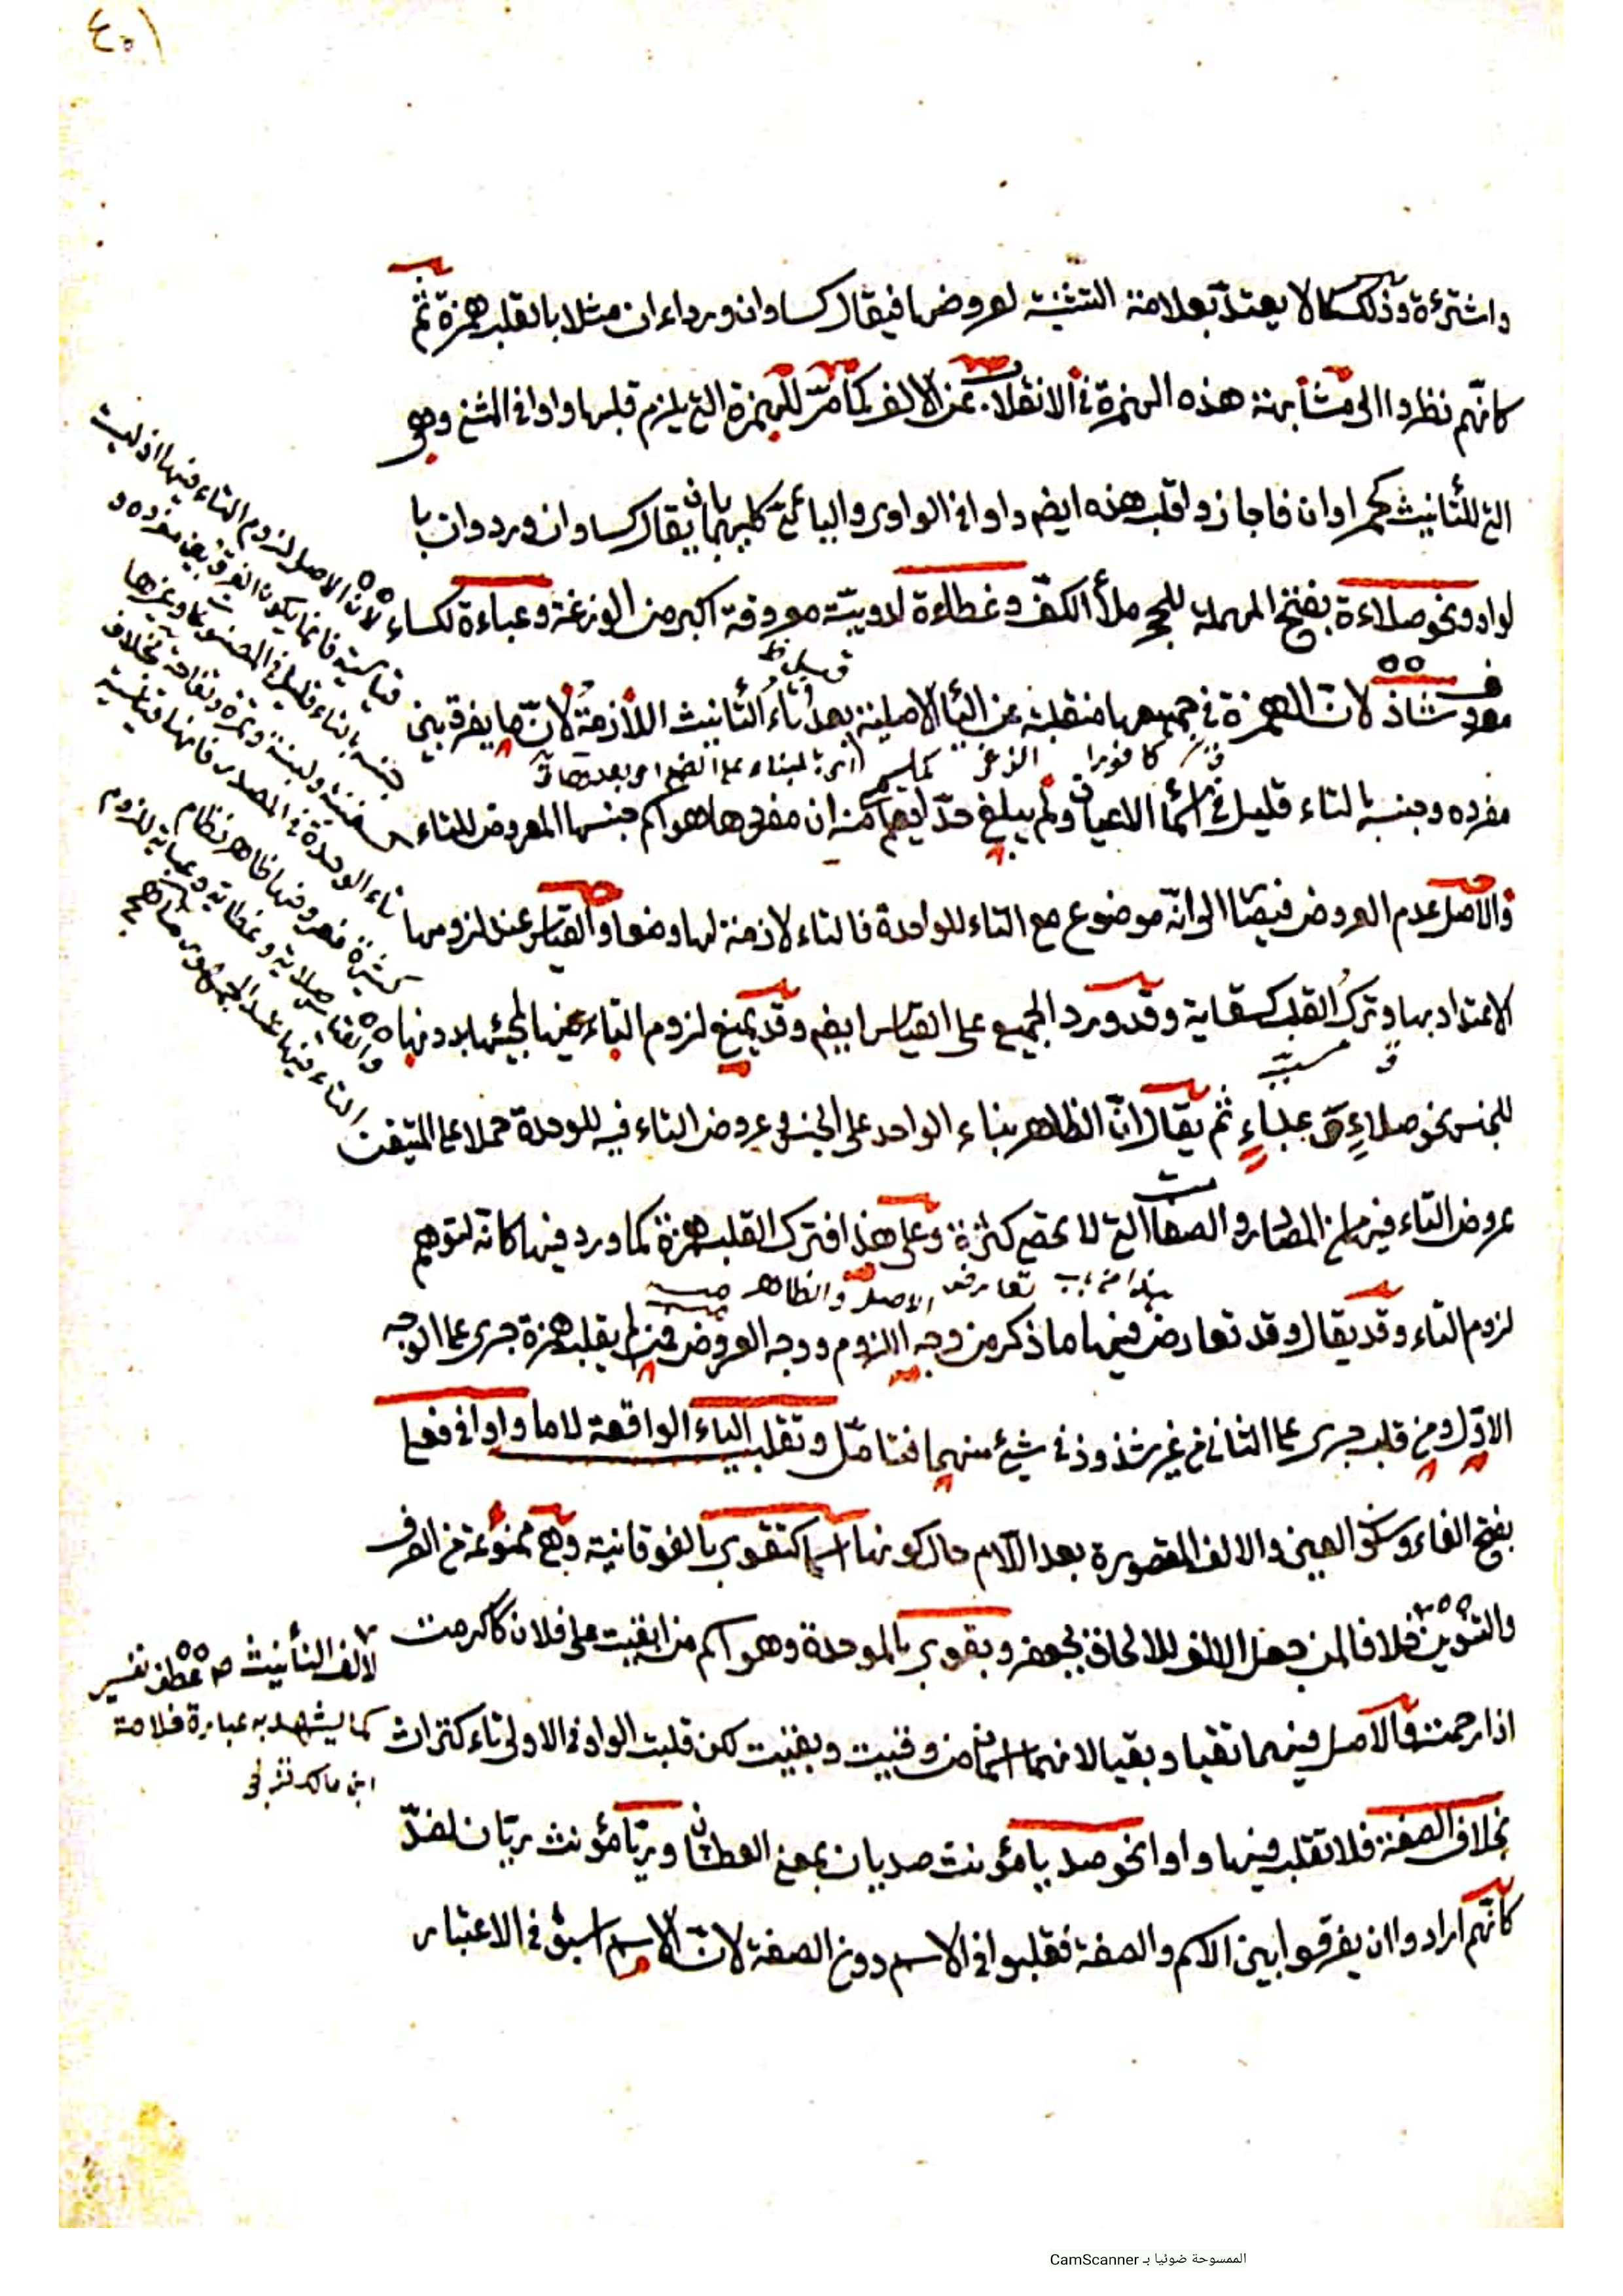 ٤٥١
واشترءة وذلك كما لا يعتد بعلامة التثنية لعروضها فيقال كساوان ورداءان مثلا بالقلب همزة ثم
كانهم نظروا الى مشابهة هذه الهمزة في الانقلاب عن الالف كما مر للهمزة التي يلزم قلبها واوا في المثنى وهو
التي للتأنيث كحمراوان فاجازوا قلب هذه ايضا واوا في الواوى واليائى كليهما فيقال كساوان وردوان با
لواو ونحو صلاءة بفتح المهملة للحجر ملأ الكف وعظاءة لدويبة معروفة اكبر من الوزغة وعباءة لكساء
معروف شاذ لان الهمزة في جميعها منقلبة عن الياء الاصلية بعد تاء التأنيث اللازمة لان ما يفرق بين
مفرده وجنسه بالتاء قليل في اسماء الاعيان ولم يبلغ حد ان مفردها هو اسم جنسها المعروض للتاء
والاصل عدم العروض الى انه موضوع مع التاء للواحدة فالتاء لازمة لها وضعا والقياس عند لزومها
الاعتداد بها وترك القلب كسقاية وقد ورد الجميع على القياس ايضا وقد يمنع لزوم التاء فيها لمجيئها بدونها
للجنس نحو صلاء وعباء ثم يقال ان الظاهر بناء الواحد على الجنس في عروض التاء فيه للوحدة حملا على المتيقن
عروض التاء فيه من المصادر والصفات التي لا تحصى كثرة وعلى هذا فترك القلب همزة كما ورد فيها كانه لتوهم
تعارض الاصل والظاهر
لزوم التاء وقد يقال وقد تعارض فيها ما ذكر من وجه اللزوم ووجه العروض فمن لم يقلب همزة جرى على الوجه
الاول ومن قلب جرى على الثاني من غير شذوذ في شيء منهما فتامل وتقلب الياء الواقعة لاما واوا في فعلى
بفتح الفاء وسكون العين والالف المقصورة بعد اللام حال كونها اسما كتقوى بالفوقانية وهي ممنوعة من الصرف
والتنوين خلافا لمن جعل الالف للالحاق بجعفر وبقوى بالموحدة وهو اسم من ابقيت على فلان كاكرمت
اذا رحمته والاصل فيهما تقيا وبقيا لانهما اسمان من وقيت وبقيت لكن قلبت الواو في الاولى تاء كتراث
بخلاف الصفة فلا تقلب فيها واوا نحو صديا مؤنث صديان بمعنى العطشان وريا مؤنث ريان لضد
كانهم ارادوا ان يفرقوا بين الاسم والصفة فقلبوا في الاسم دون الصفة لان الاسم اسبق في الاعتبار
لان الاصل لزوم التاء فيها اذ ليست
قياسية فانما يكون الفرق بين مفرده و
جنسه بالتاء قليل في المصنوعات وغيرها
سفينة ولبنة وتمرة وتفاحة بخلاف
تاء الوحدة في المصدر فانها قياسية
كثيرة فعروضها ظاهر نظام
والقياس صلاية وعظاية وعباية للزوم
التاء فيها عند الجمهور
لالف التأنيث عطف تفسير
كما يشهد به عبارة خلاصة
ابن مالك
الممسوحة ضوئيا بـ CamScanner